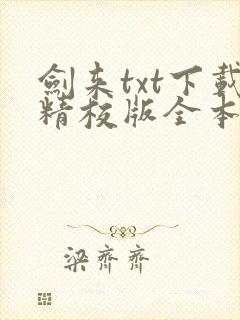 劍来txt下載
精校版全本
梁齊齊